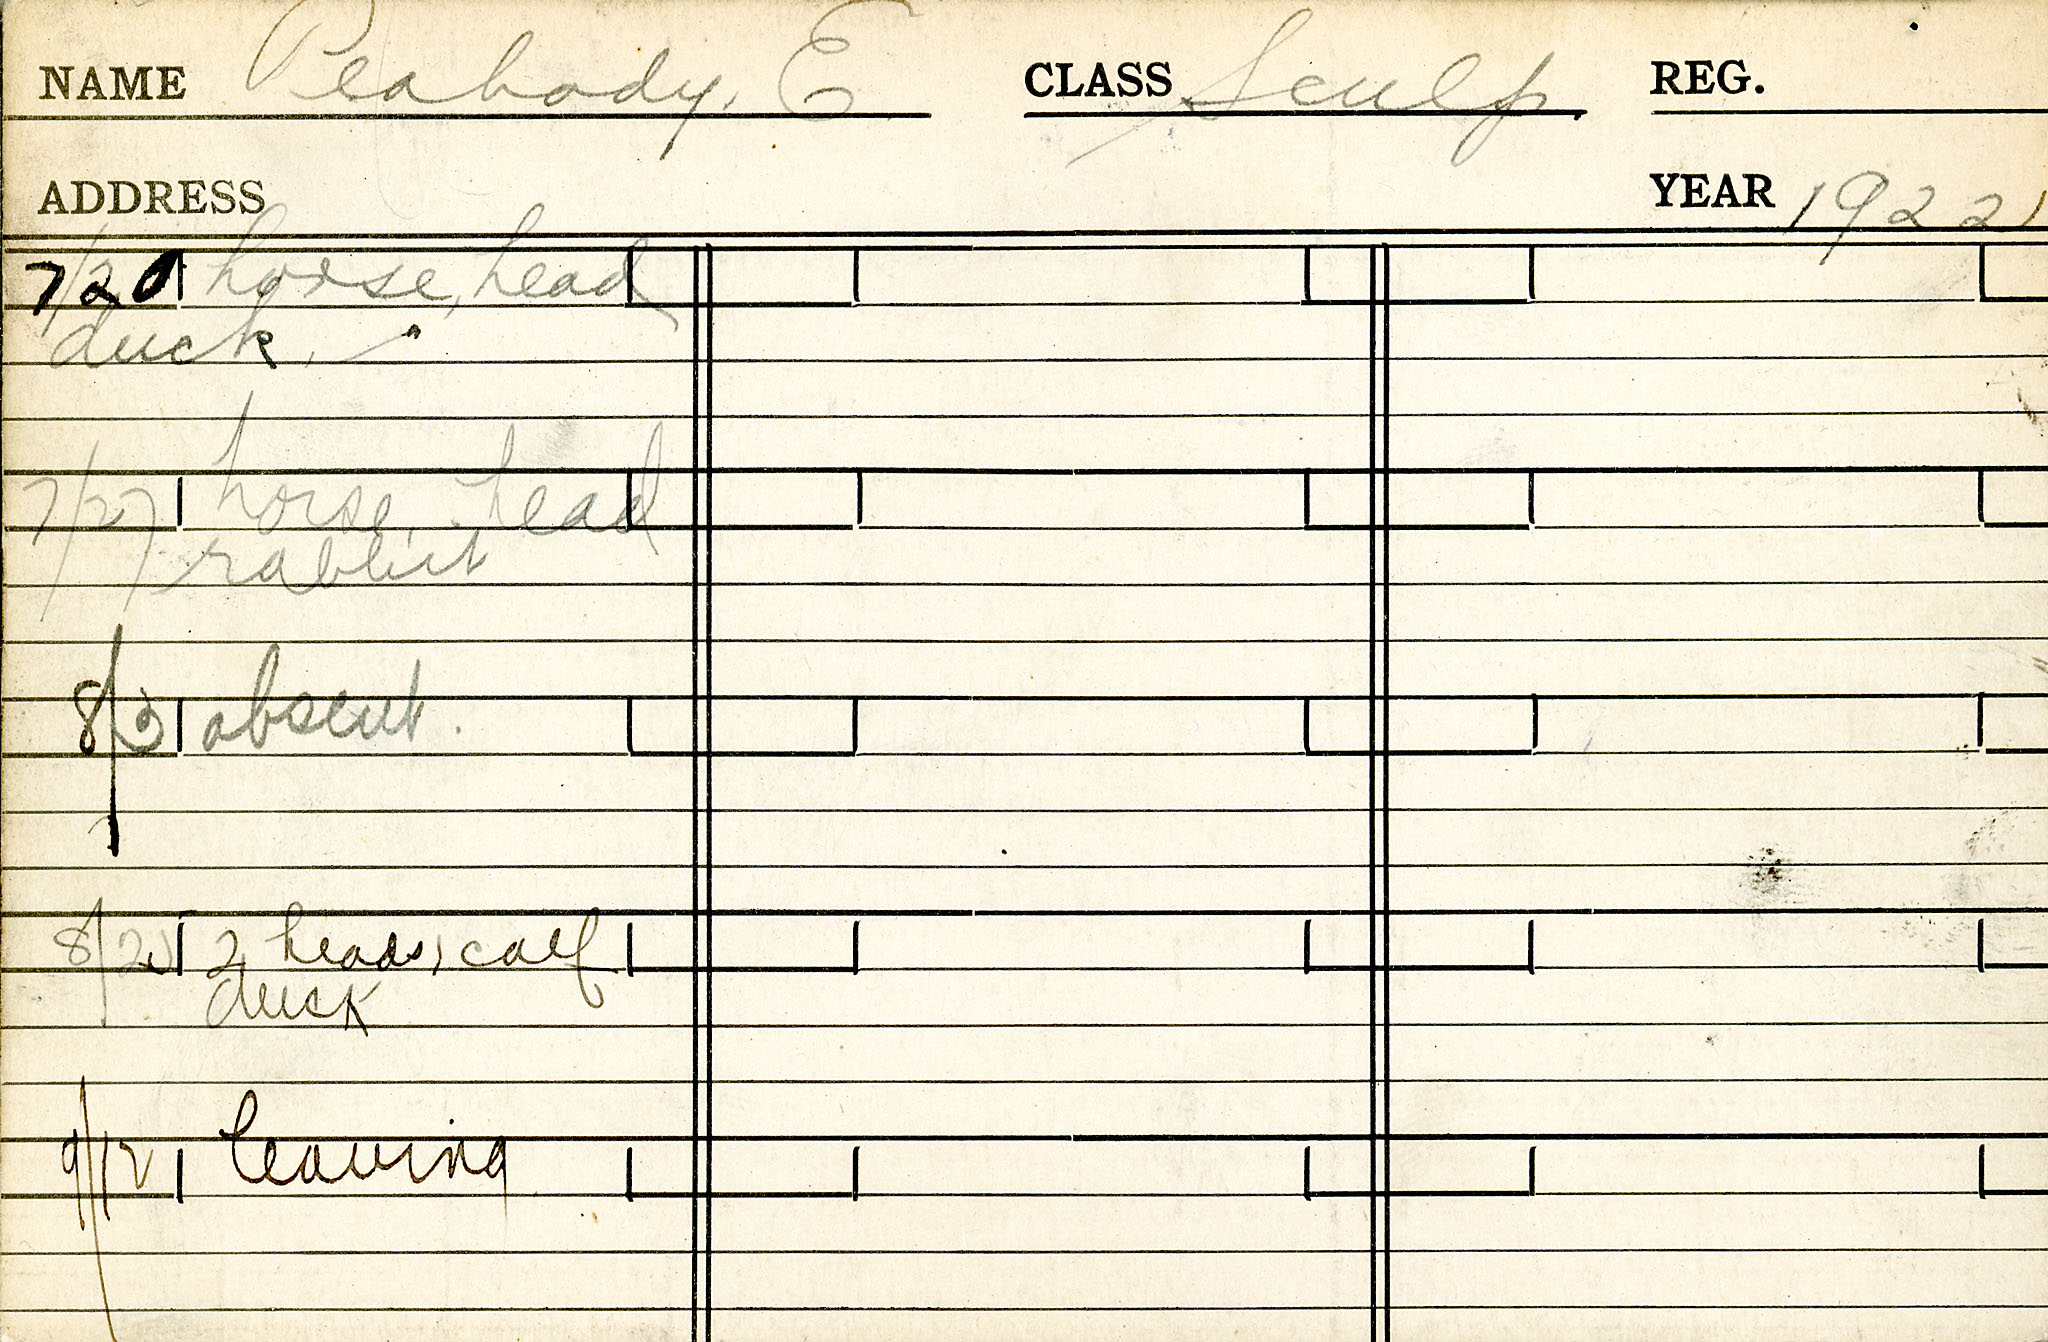 NAME Peabody, E CLASS Sculp REG.
ADDRESS YEAR 1922
7/20 horse, head
duck,
7/27 horse, head
rabbit
8/3 absent.
8/20 2 heads, calf
duck
9/12 leaving